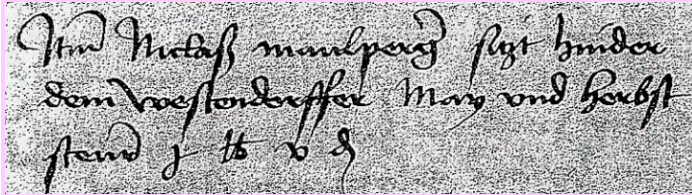 Itm Niclaß maulperg sizt hinder
dem westendorffer May vnd herbst
steur j lb v d